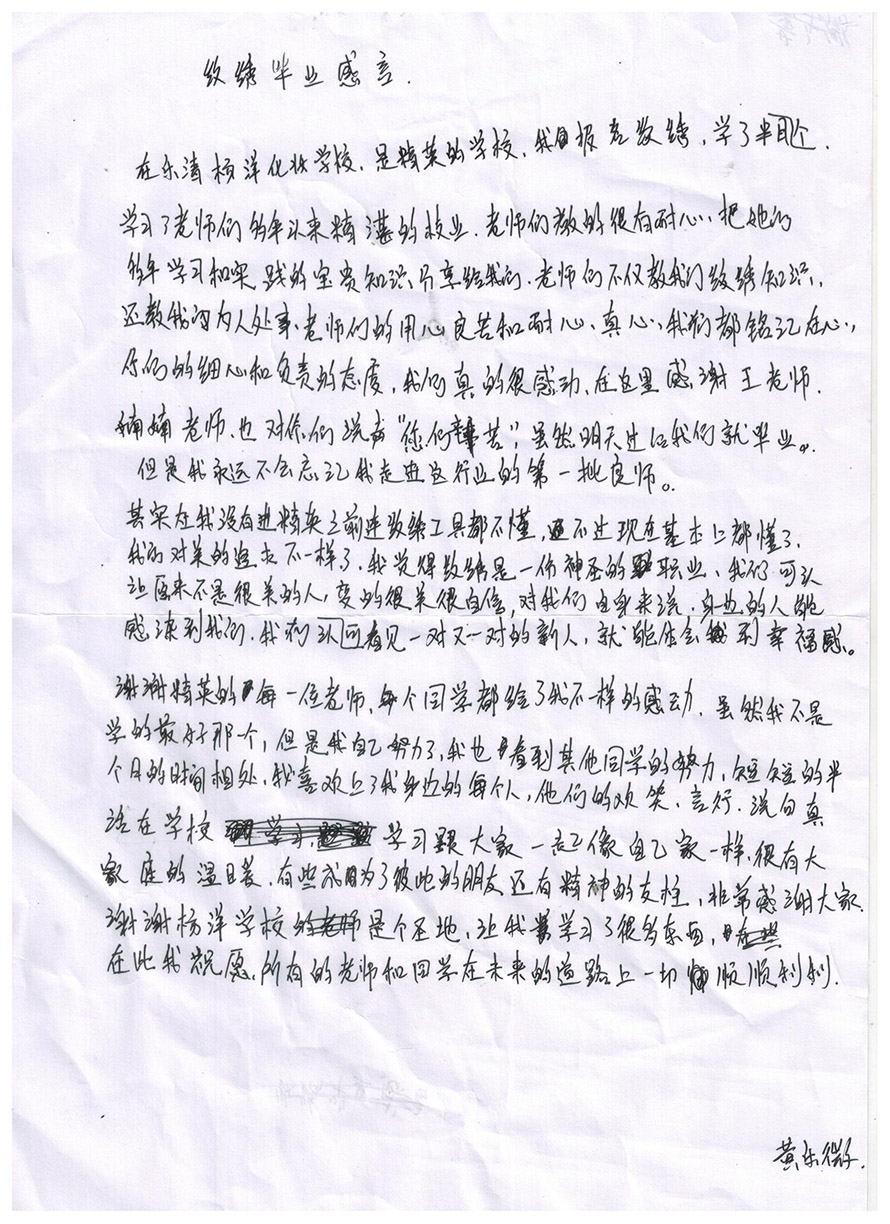 纹绣毕业感言.
在乐清杨洋化妆学校,是精英的学校,我报名纹绣,学了半月个.
学习了老师们多年以来精湛的技业.老师们教的很有耐心,把她的
多年学习和实践的宝贵知识分享给我们.老师们不仅教我们纹绣知识,
还教我们为人处事、老师们的用心良苦和耐心、真心,我们都铭记在心,
你们的细心和负责的态度,我们真的很感动,在这里感谢王老师.
楠楠老师.也对你们说声"您们辛苦"虽然明天过后我们就毕业。
但是我永远不会忘记我走进这行业的第一批良师。
其实在我没有进精英之前连纹绣工具都不懂,不过现在基本上都懂了.
我们对美的追求不一样了.我觉得纹绣是一份神圣的职业、我们可以
让原来不是很美的人,变的很美很自信,对我们自身来说.身边的人能
感谢到我们.我们可以看见一对又一对的新人,就能体会到幸福感。
谢谢精英的每一位老师,每个同学都给了我不一样的感动.虽然我不是
学的最好那个,但是我自己努力了,我也看到其他同学的努力,短短的半
个月的时间相处,我喜欢上了我身边的每个人,他们的欢笑、言行.说句真
话在学校学习跟大家一起像自己家一样,很有大
家庭的温暖,有些成为了彼此的朋友还有精神的支柱,非常感谢大家.
谢谢杨洋学校是个圣地,让我学习了很多东西,
在此我祝愿.所有的老师和同学在未来的道路上一切顺顺利利.
黄乐微.